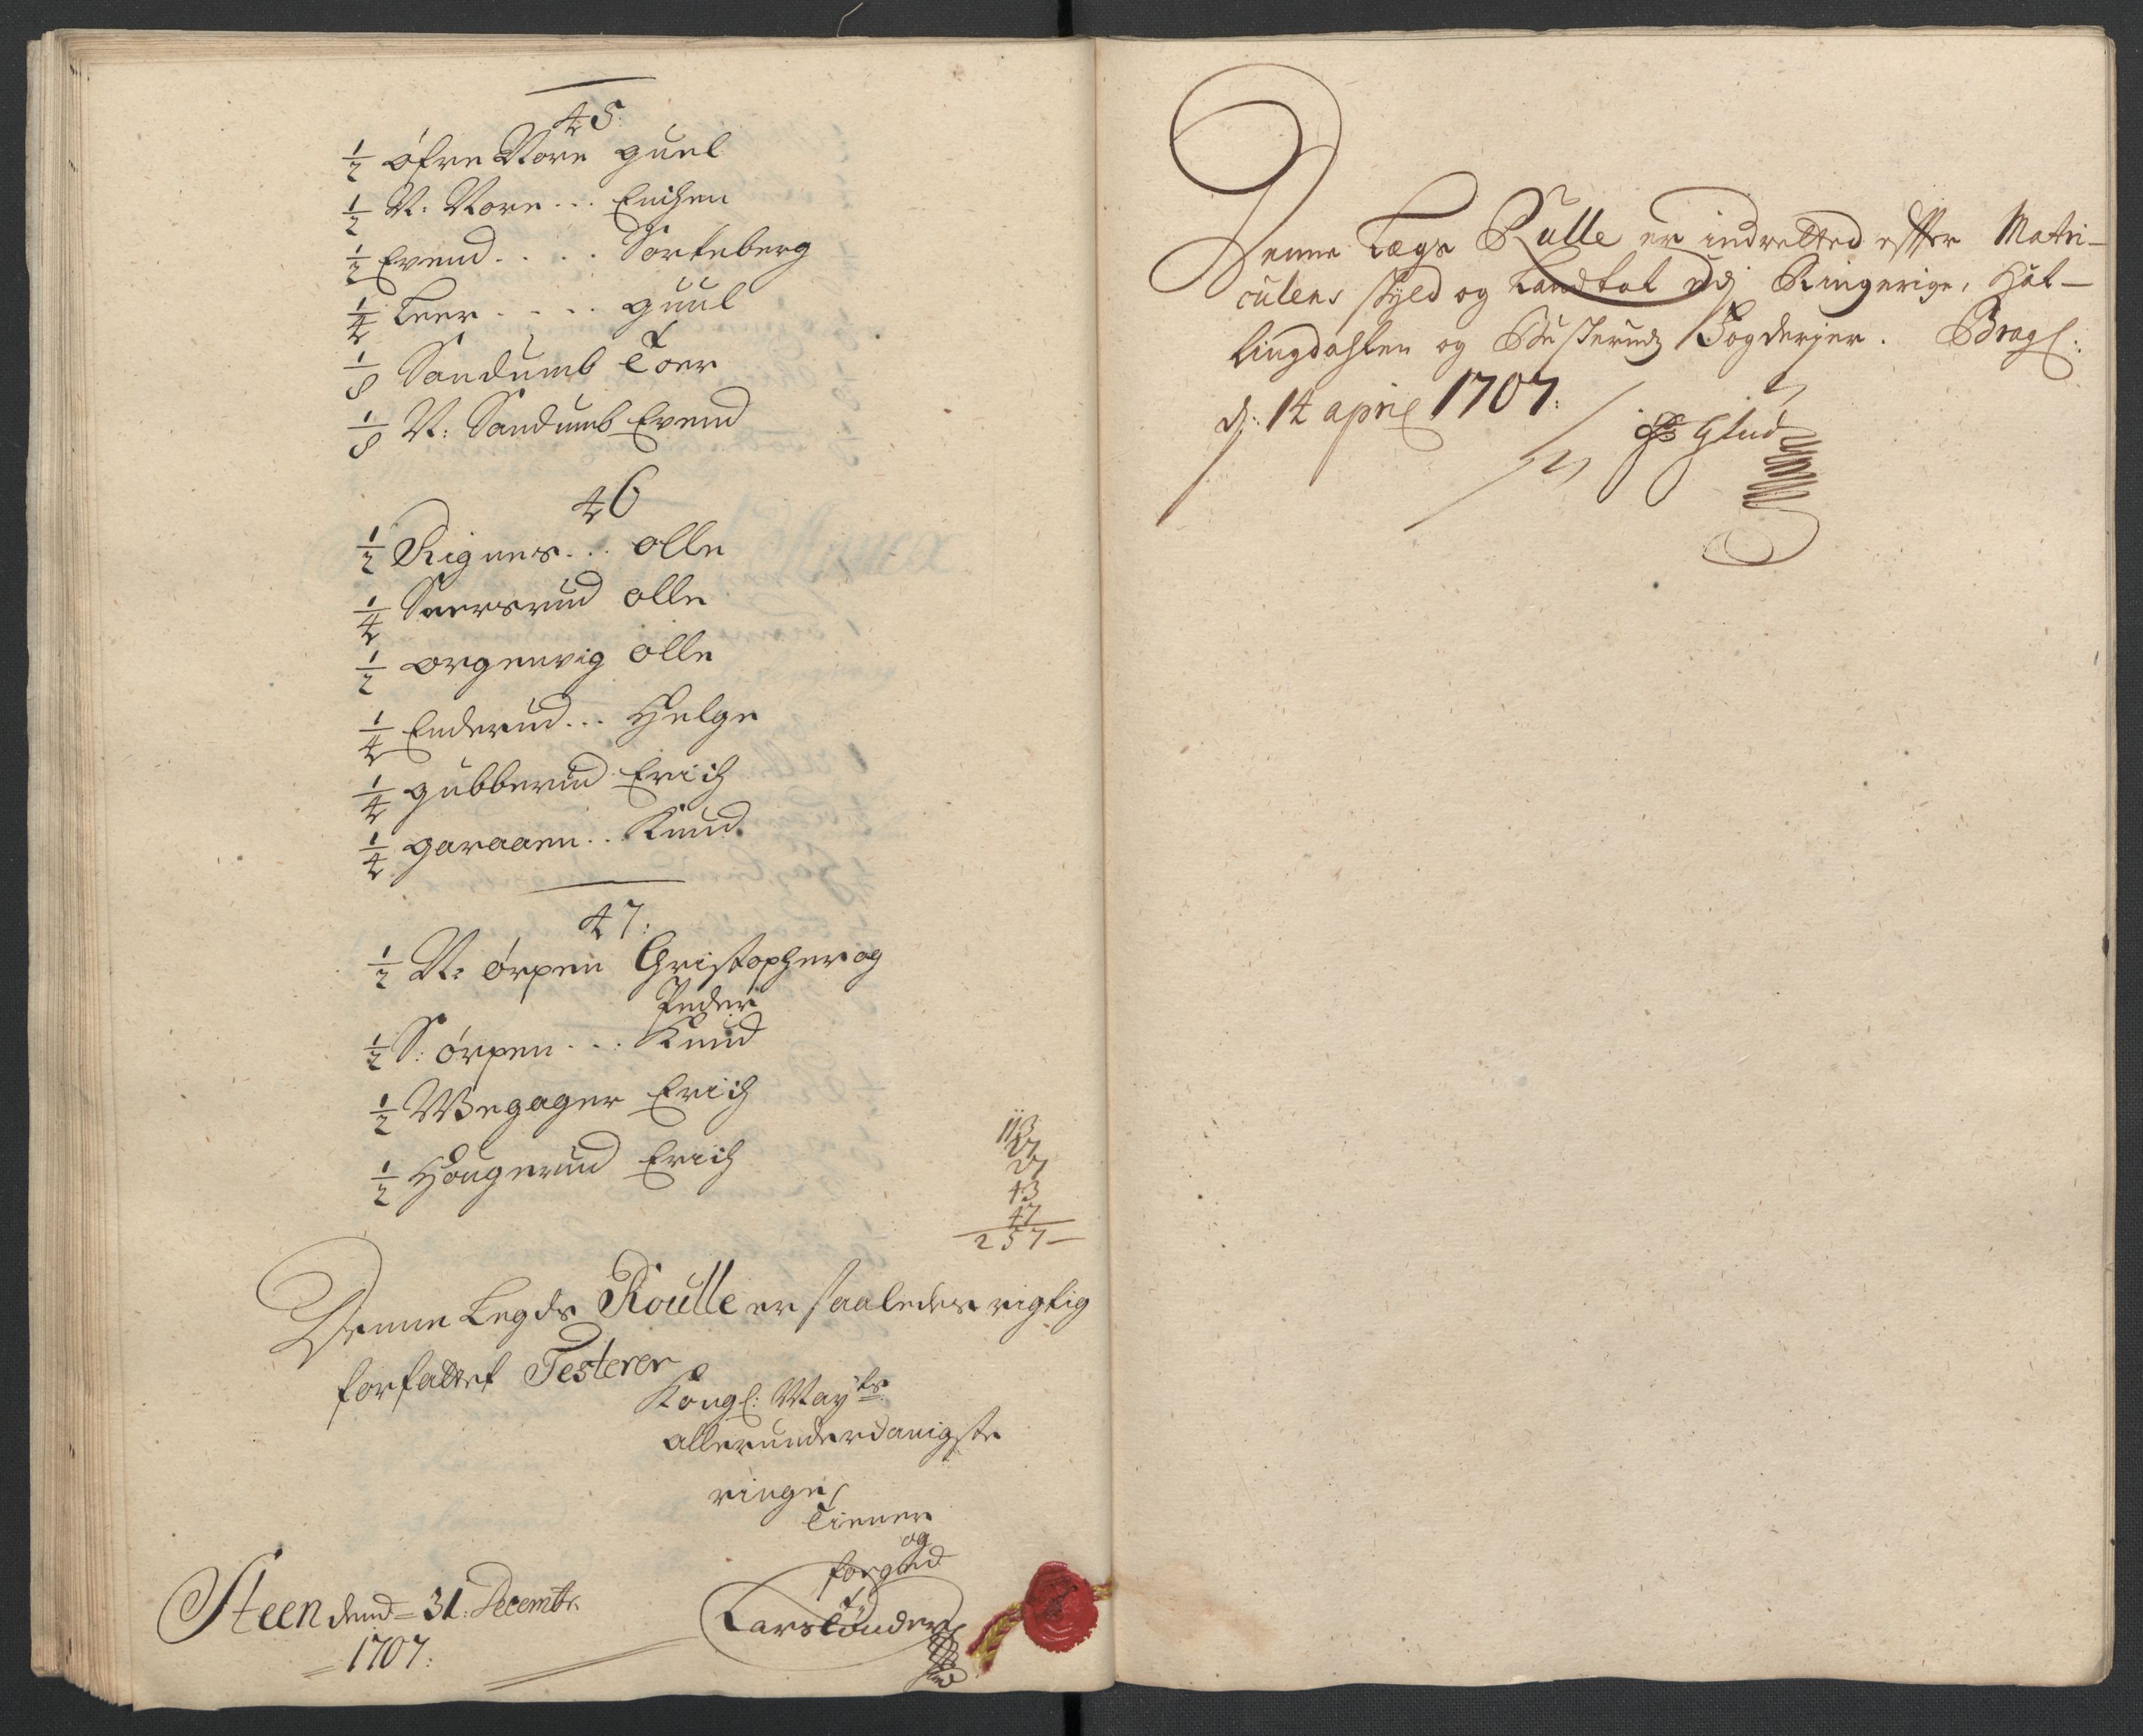 45.
1/2 øfre Nore guul
1/2 N: Nore... Erichen
1/2 Evend.... Sorteberg
1/4 Leer.... guul
1/8 Sandumb Toer
1/8 N: Sandumb Evend
46
1/2 Rignes... olle
1/4 Sversrud olle
1/2 orgenvig olle
1/4 Enderud... Helge
1/4 gubberud Erich
1/4 garaaen.. Knud
47:
1/2 N: ørpen Christopher og
Peder
1/2 S: ørpen... Knud
1/2 Wegager Erich
1/2 Hougerud Erich
113
27
27
43
47
257
Denne Legds Roulle er saaledes rigtig
forfattet Testerer
Kongl: Mayts
allerunderdanigste
ringe
Tiener
og
forgud
Lars Tønder
Steen dend 31. Decembr
1707.
Denne Lægs Rulle er indretted effter Matri-
culens skyld og Landtal udj Ringerige, Hal-
lingdahlen og Buskeruds Fogderjer. Brags:
dj: 14 april 1707:
Glud